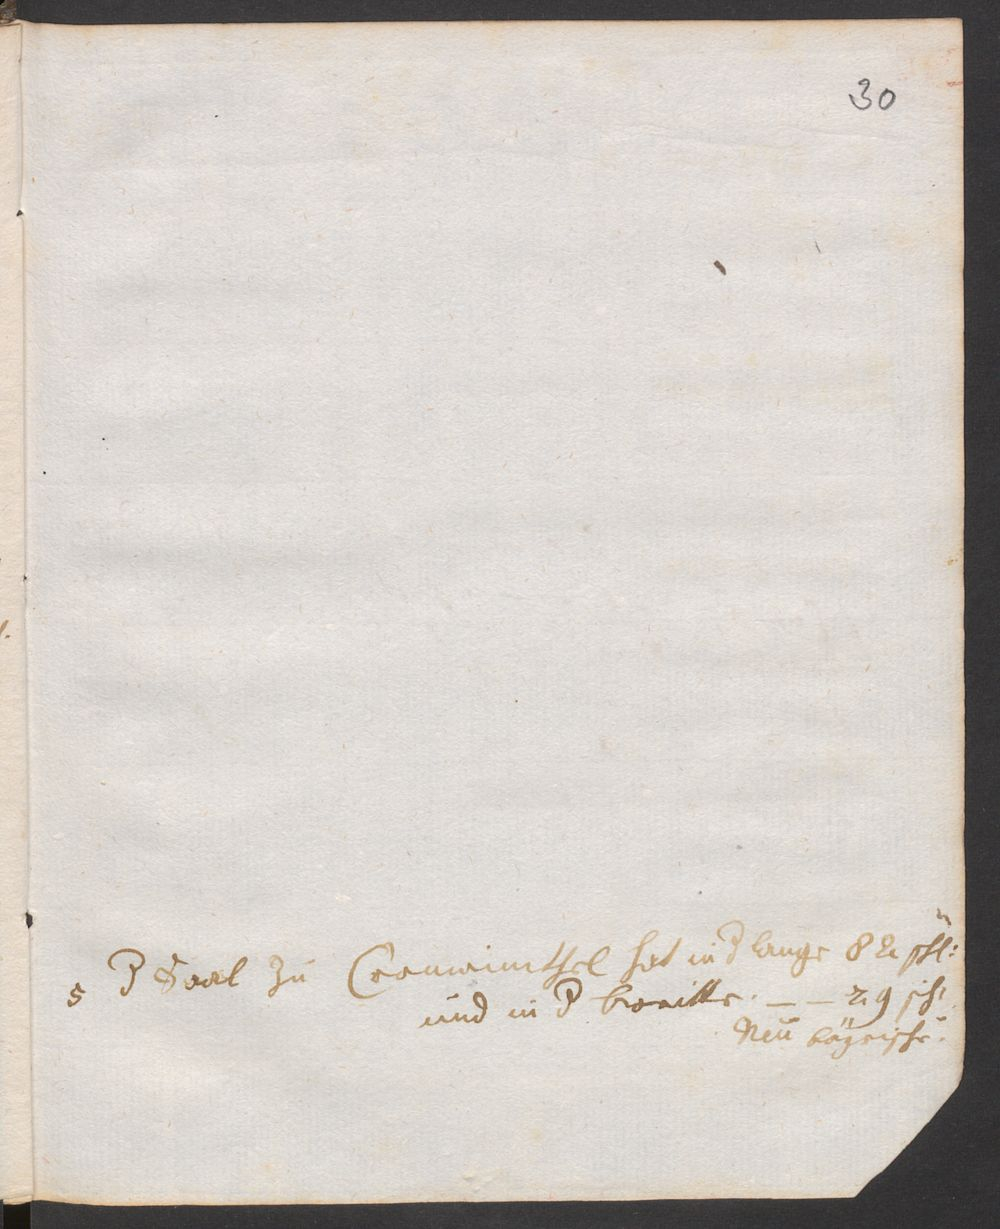 30
5 D Saal zu Cronwinthel hat in D lange 82 sch:
und in D breitte. — — 29 sch:
Neu bäyrische: